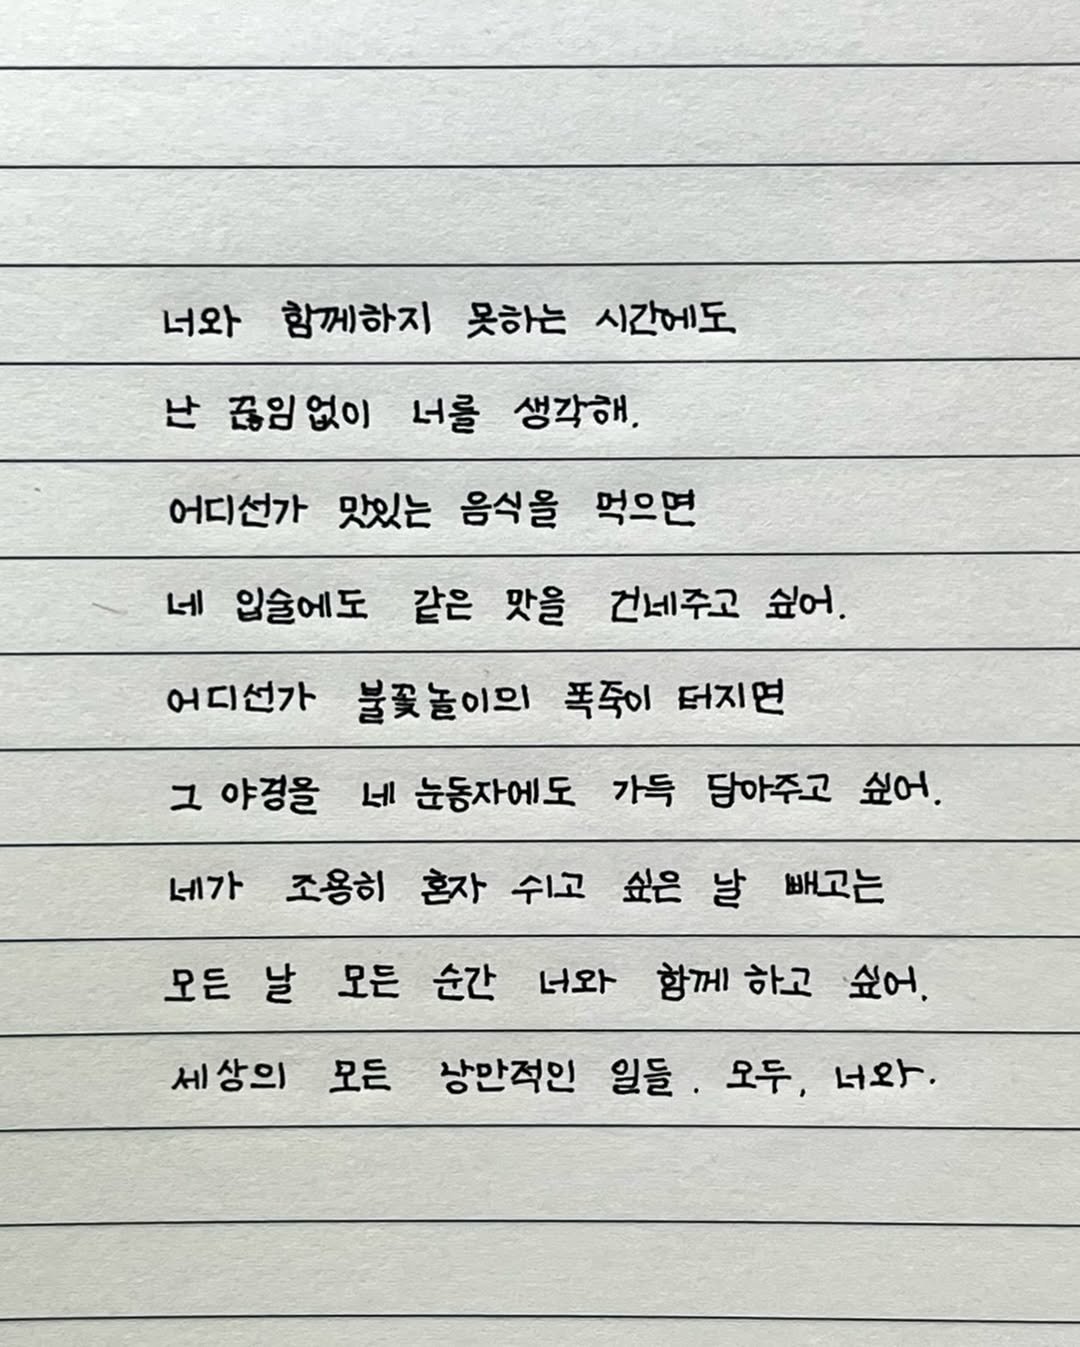 너와 함께하지 못하는 시간에도
난 끊임없이 너를 생각해.
어디선가 맛있는 음식을 먹으면
네 입술에도 같은 맛을 건네주고 싶어.
어디선가 불꽃놀이의 폭죽이 터지면
그 야경을 네 눈동자에도 가득 담아주고 싶어.
네가 조용히 혼자 쉬고 싶은 날 빼고는
모든 날 모든 순간 너와 함께 하고 싶어.
세상의 모든 낭만적인 일들. 모두, 너와.